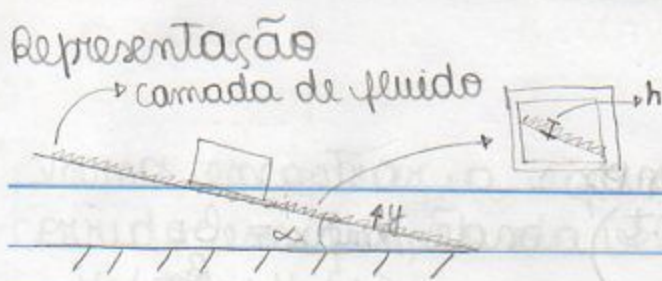 Representação
camada de fluido
h
α
y